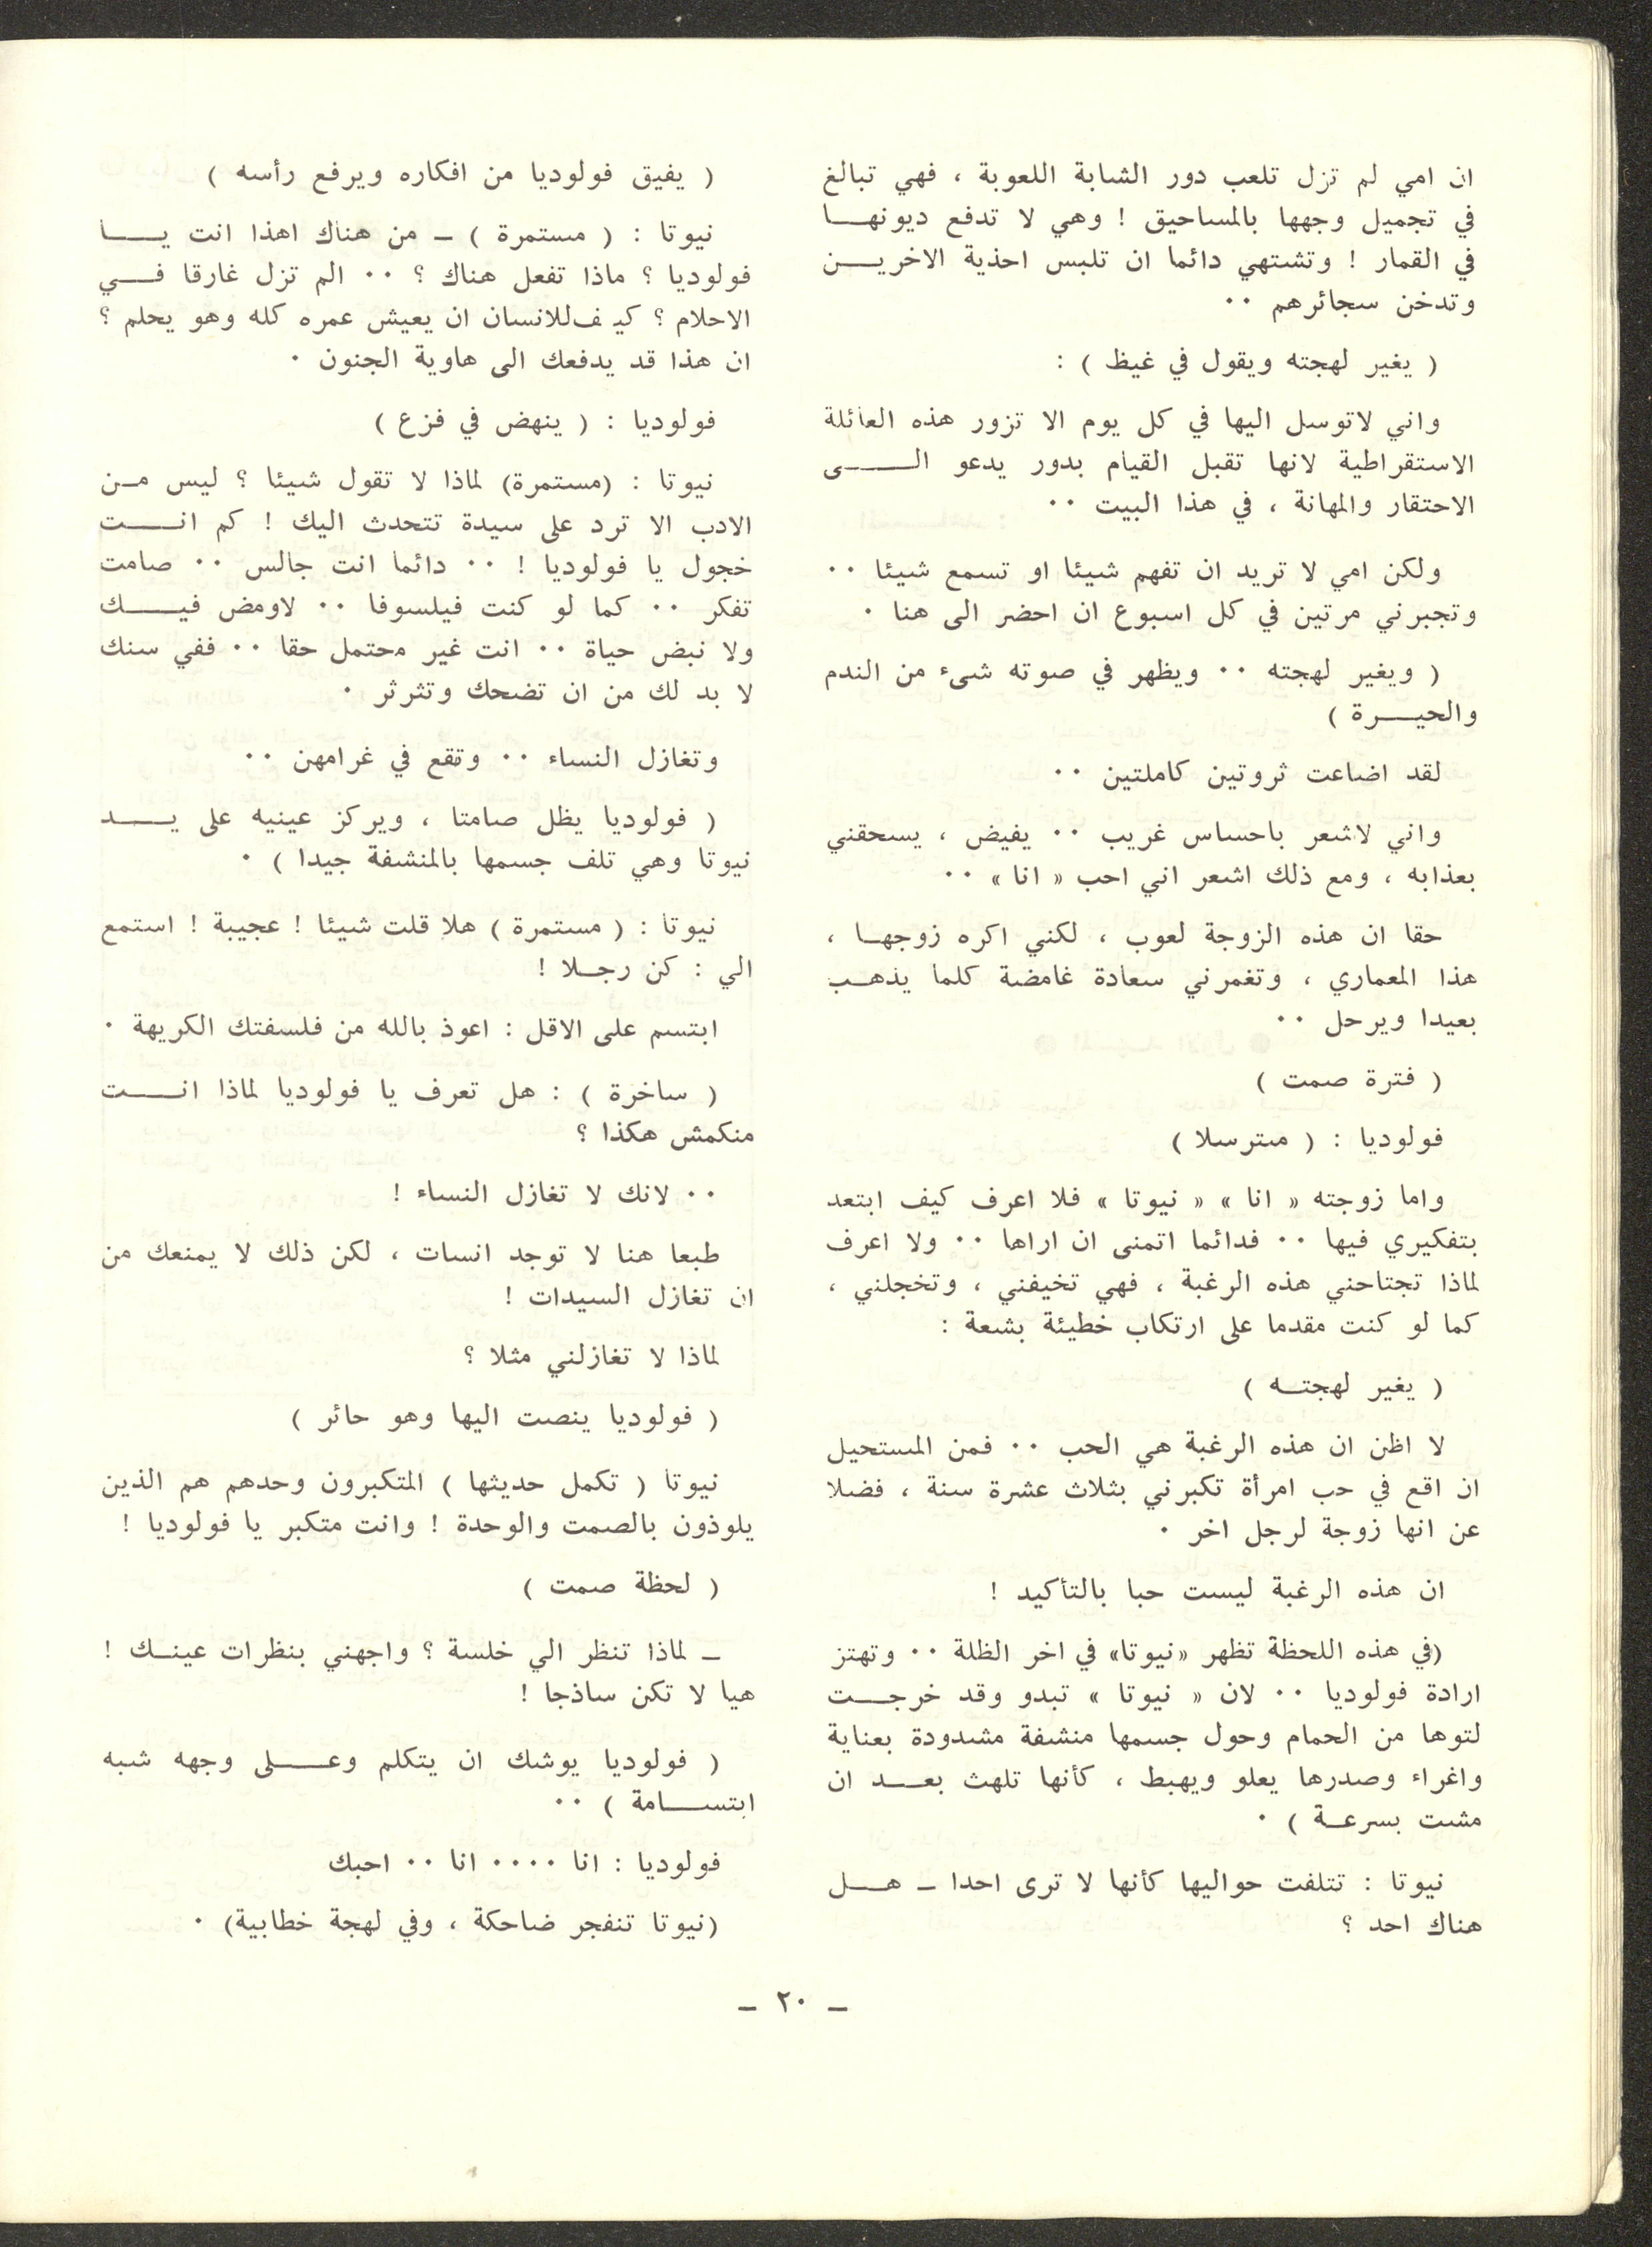 ان امي لم تزل تلعب دور الشابة اللعوبة ، فهي تبالغ
في تجميل وجهها بالمساحيق ! وهي لا تدفع ديونهـــا
في القمار ! وتشتهي دائما ان تلبس احذية الاخريــن
وتدخن سجائرهم ٠٠
( يغير لهجته ويقول في غيظ ) :
واني لاتوسل اليها في كل يوم الا تزور هذه العائلة
الاستقراطية لانها تقبل القيام بدور يدعو الـــــى
الاحتقار والمهانة ، في هذا البيت ٠٠
ولكن امي لا تريد ان تفهم شيئا او تسمع شيئا ٠٠
وتجبرني مرتين في كل اسبوع ان احضر الى هنا ٠
( ويغير لهجته ٠٠ ويظهر في صوته شىء من الندم
والحيـــرة )
لقد اضاعت ثروتين كاملتين ٠٠
واني لاشعر باحساس غريب ٠٠ يفيض ، يسحقني
بعذابه ، ومع ذلك اشعر اني احب « انا » ٠٠
حقا ان هذه الزوجة لعوب ، لكني اكره زوجهـا ،
هذا المعماري ، وتغمرني سعادة غامضة كلما يذهـب
بعيدا ويرحل ٠٠
( فترة صمت )
فولوديا : ( مسترسلا )
واما زوجته « انا » « نيوتا » فلا اعرف كيف ابتعد
بتفكيري فيها ٠٠ فدائما اتمنى ان اراها ٠٠ ولا اعرف
لماذا تجتاحني هذه الرغبة ، فهي تخيفني ، وتخجلني ،
كما لو كنت مقدما على ارتكاب خطيئة بشعة :
( يغير لهجتــه )
لا اظن ان هذه الرغبة هي الحب ٠٠ فمن المستحيل
ان اقع في حب امرأة تكبرني بثلاث عشرة سنة ، فضلا
عن انها زوجة لرجل اخر ٠
ان هذه الرغبة ليست حبا بالتأكيد !
(في هذه اللحظة تظهر «نيوتا» في اخر الظلة ٠٠ وتهتز
ارادة فولوديا ٠٠ لان « نيوتا » تبدو وقد خرجــت
لتوها من الحمام وحول جسمها منشفة مشدودة بعناية
واغراء وصدرها يعلو ويهبط ، كأنها تلهث بعــد ان
مشت بسرعــة ) ٠
نيوتا : تتلفت حواليها كأنها لا ترى احدا ــ هـــل
هناك احد ؟
( يفيق فولوديا من افكاره ويرفع رأسه )
نيوتا : ( مستمرة ) ــ من هناك اهذا انت يـــــا
فولوديا ؟ ماذا تفعل هناك ؟ ٠٠ الم تزل غارقا فـــي
الاحلام ؟ كيـ ف للانسان ان يعيش عمره كله وهو يحلم ؟
ان هذا قد يدفعك الى هاوية الجنون ٠
فولوديا : ( ينهض في فزع )
نيوتا : (مستمرة) لماذا لا تقول شيئا ؟ ليس مـن
الادب الا ترد على سيدة تتحدث اليك ! كم انـــــت
خجول يا فولوديا ! ٠٠ دائما انت جالس ٠٠ صامت
تفكر ٠٠ كما لو كنت فيلسوفا ٠٠ لاومض فيـــــك
ولا نبض حياة ٠٠ انت غير محتمل حقا ٠٠ ففي سنك
لا بد لك من ان تضحك وتثرثر ٠
وتغازل النساء ٠٠ وتقع في غرامهن ٠٠
( فولوديا يظل صامتا ، ويركز عينيه على يـــــد
نيوتا وهي تلف جسمها بالمنشفة جيدا ) ٠
نيوتا : ( مستمرة ) هلا قلت شيئا ! عجيبة ! استمع
الي : كن رجــلا !
ابتسم على الاقل : اعوذ بالله من فلسفتك الكريهة ٠
( ساخرة ) : هل تعرف يا فولوديا لماذا انـــــت
منكمش هكذا ؟
٠٠ لانك لا تغازل النساء !
طبعا هنا لا توجد انسات ، لكن ذلك لا يمنعك من
ان تغازل السيدات !
لماذا لا تغازلني مثلا ؟
( فولوديا ينصت اليها وهو حائر )
نيوتا ( تكمل حديثها ) المتكبرون وحدهم هم الذين
يلوذون بالصمت والوحدة ! وانت متكبر يا فولوديا !
( لحظة صمت )
ــ لماذا تنظر الي خلسة ؟ واجهني بنظرات عينــك !
هيا لا تكن ساذجا !
( فولوديا يوشك ان يتكلم وعـــــلى وجهه شبه
ابتســــامة ) ٠٠
فولوديا : انا ٠٠٠٠ انا ٠٠ احبك
(نيوتا تنفجر ضاحكة ، وفي لهجة خطابية) ٠
ــ ٢٠ ــ